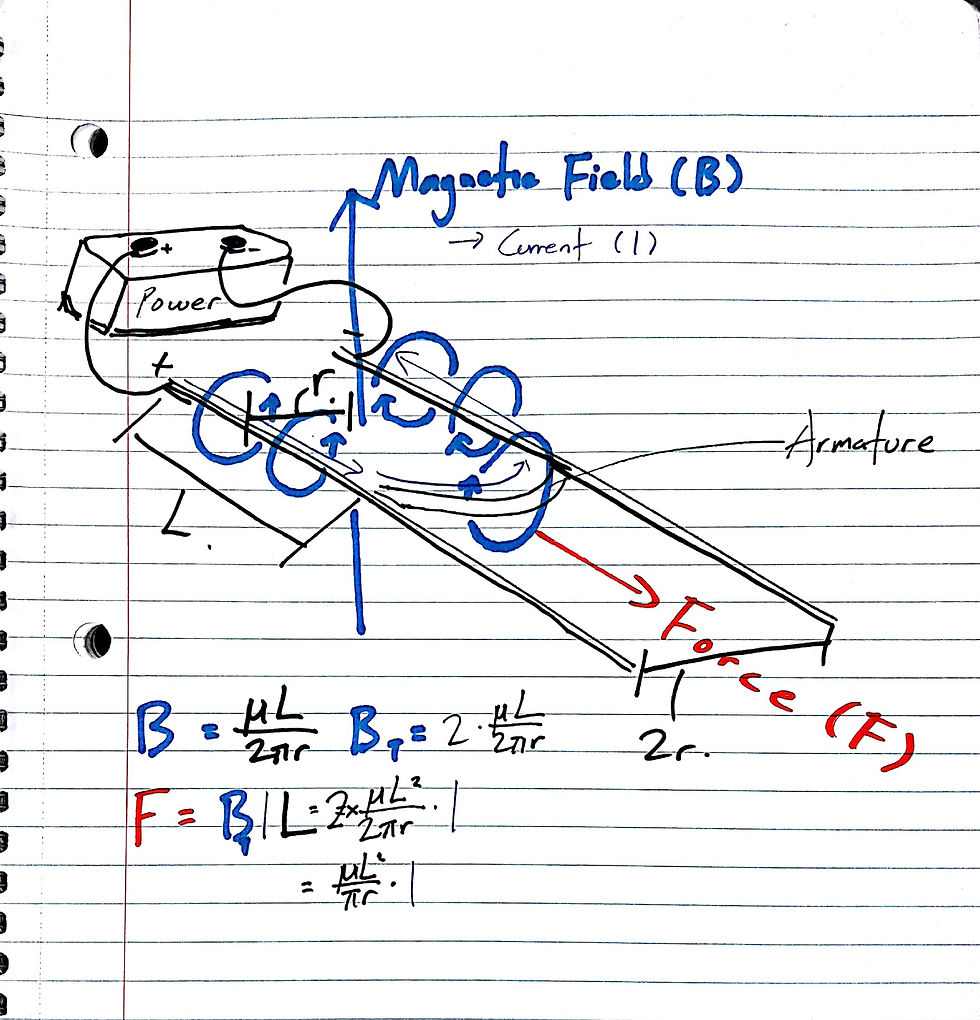 Magnetic Field (B)
→ Current (I)
+ -
Power
+
-
r.
Armature
L.
Force (F)
2r.
B = μL/2πr B_T = 2·μL/2πr
F = B_T I L = 2×μL²/2πr · I
= μL²/πr · I